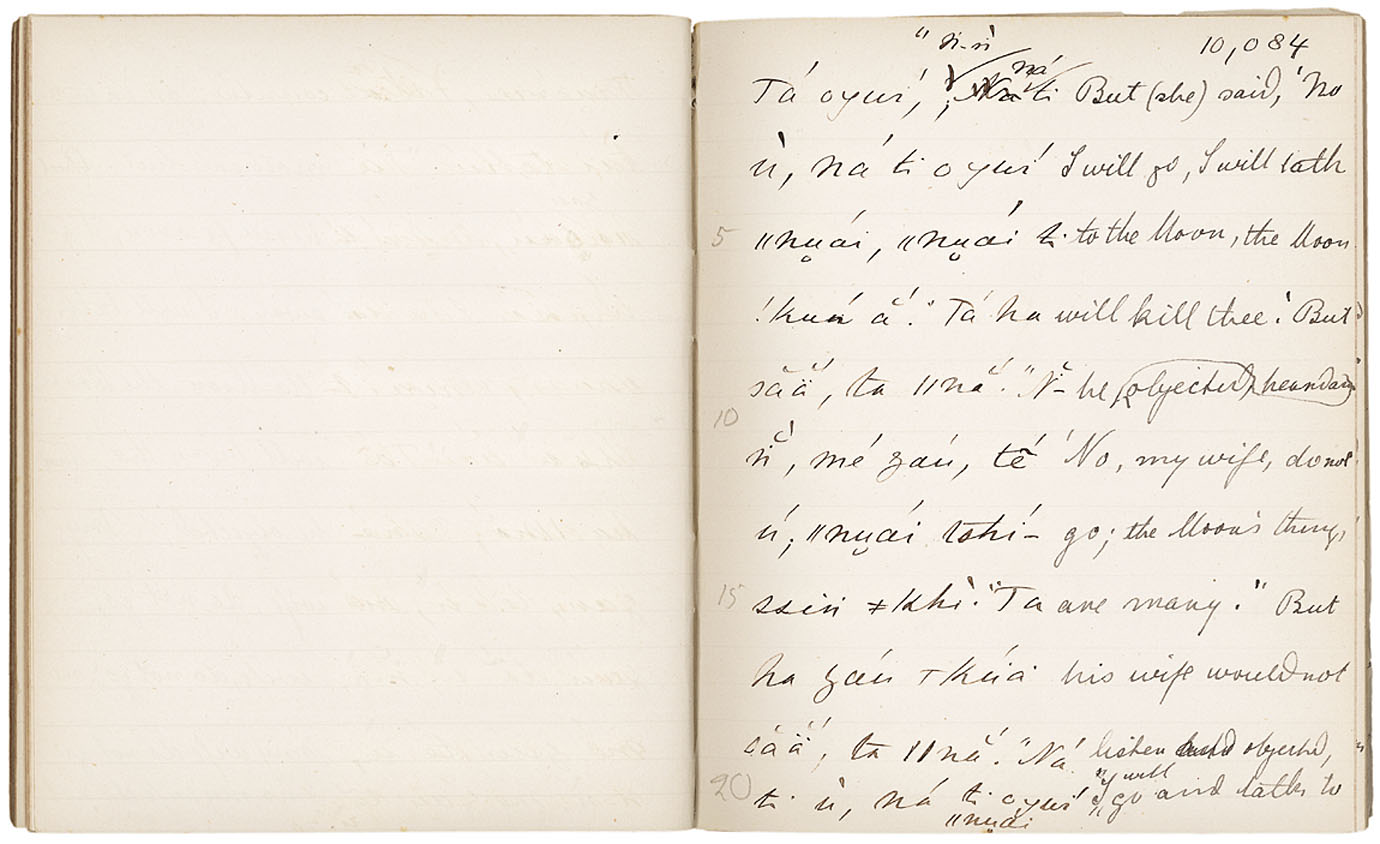 10,084
"ń-ǹ
ná
Tá oyuí, ti But (she) said, 'No
ù, ná ti oyuí I will go, I will talk
5 ǁnu̯ái, ǁnu̯ái ti to the Moon, the Moon
!kuń ắ." Tá ha will kill thee'. But
sắä́, ta ǁnắ. "Ń- he objected, he and said
10
ǹ, mé záu, tḗ 'No, my wife, do not
ú; ǁnu̯ái tohí- go; the Moon's things
15 ssín ǂkhì." Ta are many." But
ha záu ǂkúa his wife would not
sắä́, ta ǁnắ. "Ná listen objected,
"I will
20 ti ù, ná ti oyuí go and talk to
ǁnu̯ái